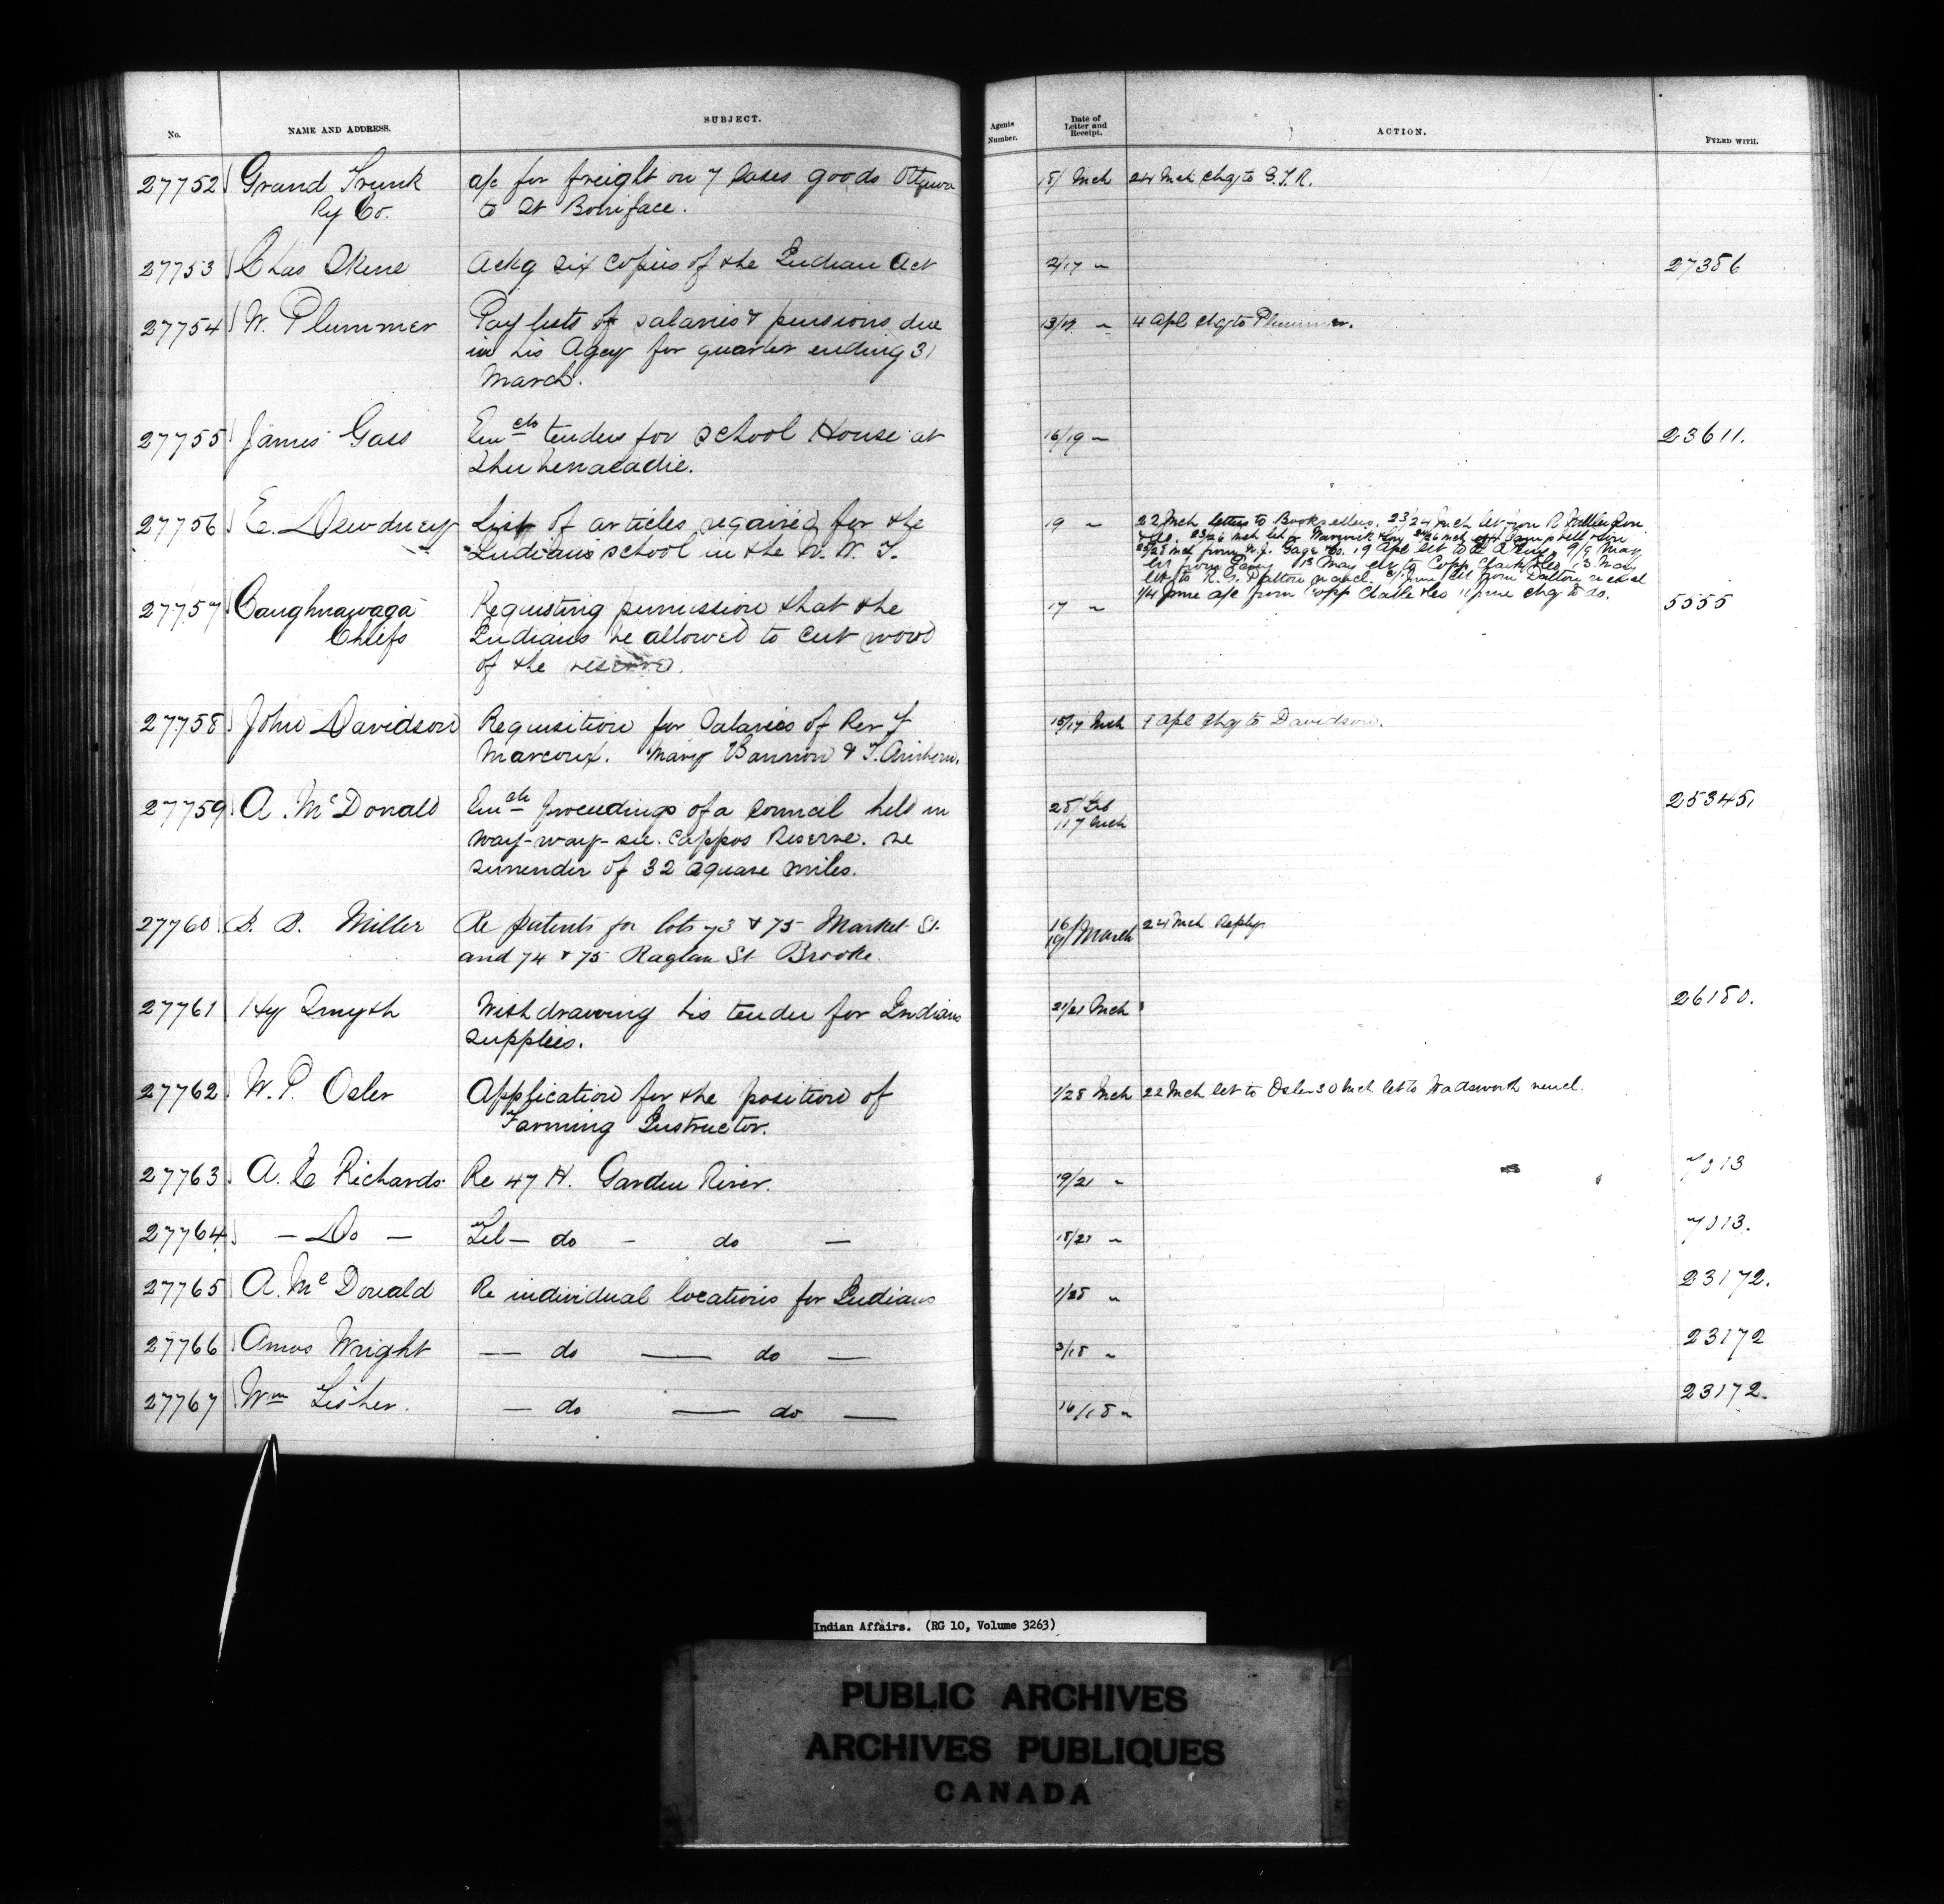 No.
NAME AND ADDRESS.
SUBJECT.
Agents Number.
Date of Letter and Receipt.
ACTION.
FYLED WITH.
27752 Grand Trunk a/c for freight on 7 Cases goods Ottawa 18/ Mch 24 Mch chq to G.T.R.
Ry Co. to St Boniface.
27753 Chas Skene Ackg six copies of the Indian Act 2/17 " 27386
27754 W. Plummer Pay lists of salaries & pensions due 13/17 " 4 Apl chq to Plummer.
in his Agcy for quarter ending 31
March.
27755 James Gass Encls tenders for School House at 16/19 " 23611.
Shubenacadie.
27756 E. Dewdney List of articles required for the 19 " 22 Mch letters to Booksellers. 23/24 Mch let from R
Indians school in the N. W. T.
from W.J. Gage & Co. 19 Apl let to 9/9 May
let from 13 May let to Copp Clark & Co 13 May
let to R. G. Dalton let from Dalton
1/4 June a/c from Copp Clark & Co 11 June chq to do.
27757 Caughnawaga Requesting permission that the 17 " 5555
Chiefs Indians be allowed to cut wood
of the reserve.
27758 John Davidson Requisition for Salaries of Rev F 15/17 Mch 7 Apl chq to Davidson.
Marcoux. Mary Bannon &
27759 A. McDonald Encls proceedings of a Council held in 28/ Feb 25345.
way-way-see-cappos Reserve. re /17 Mch
surrender of 32 square miles.
27760 B. B. Miller Re patents for lots 73 & 75 Market St. 16/ 24 Mch Reply
and 74 & 75 Raglan St Brooke. 19/ March
27761 Hy Smyth Withdrawing his tender for Indian 21/21 Mch 26180.
supplies.
27762 W. P. Osler Application for the position of 1/28 Mch 22 Mch let to Osler 30 Mch let to Wadsworth
Farming Instructor.
27763 A. E Richards Re 47 H. Garden River. 19/21 " 7013
27764 — Do — Tel — do — do — 18/21 " 7013.
27765 A. McDonald Re individual locations for Indians 1/28 " 23172.
27766 Amos Wright — do — do — 3/18 " 23172
27767 Wm Fisher. — do — do — 16/18 " 23172.
Indian Affairs. (RG 10, Volume 3263)
PUBLIC ARCHIVES
ARCHIVES PUBLIQUES
CANADA